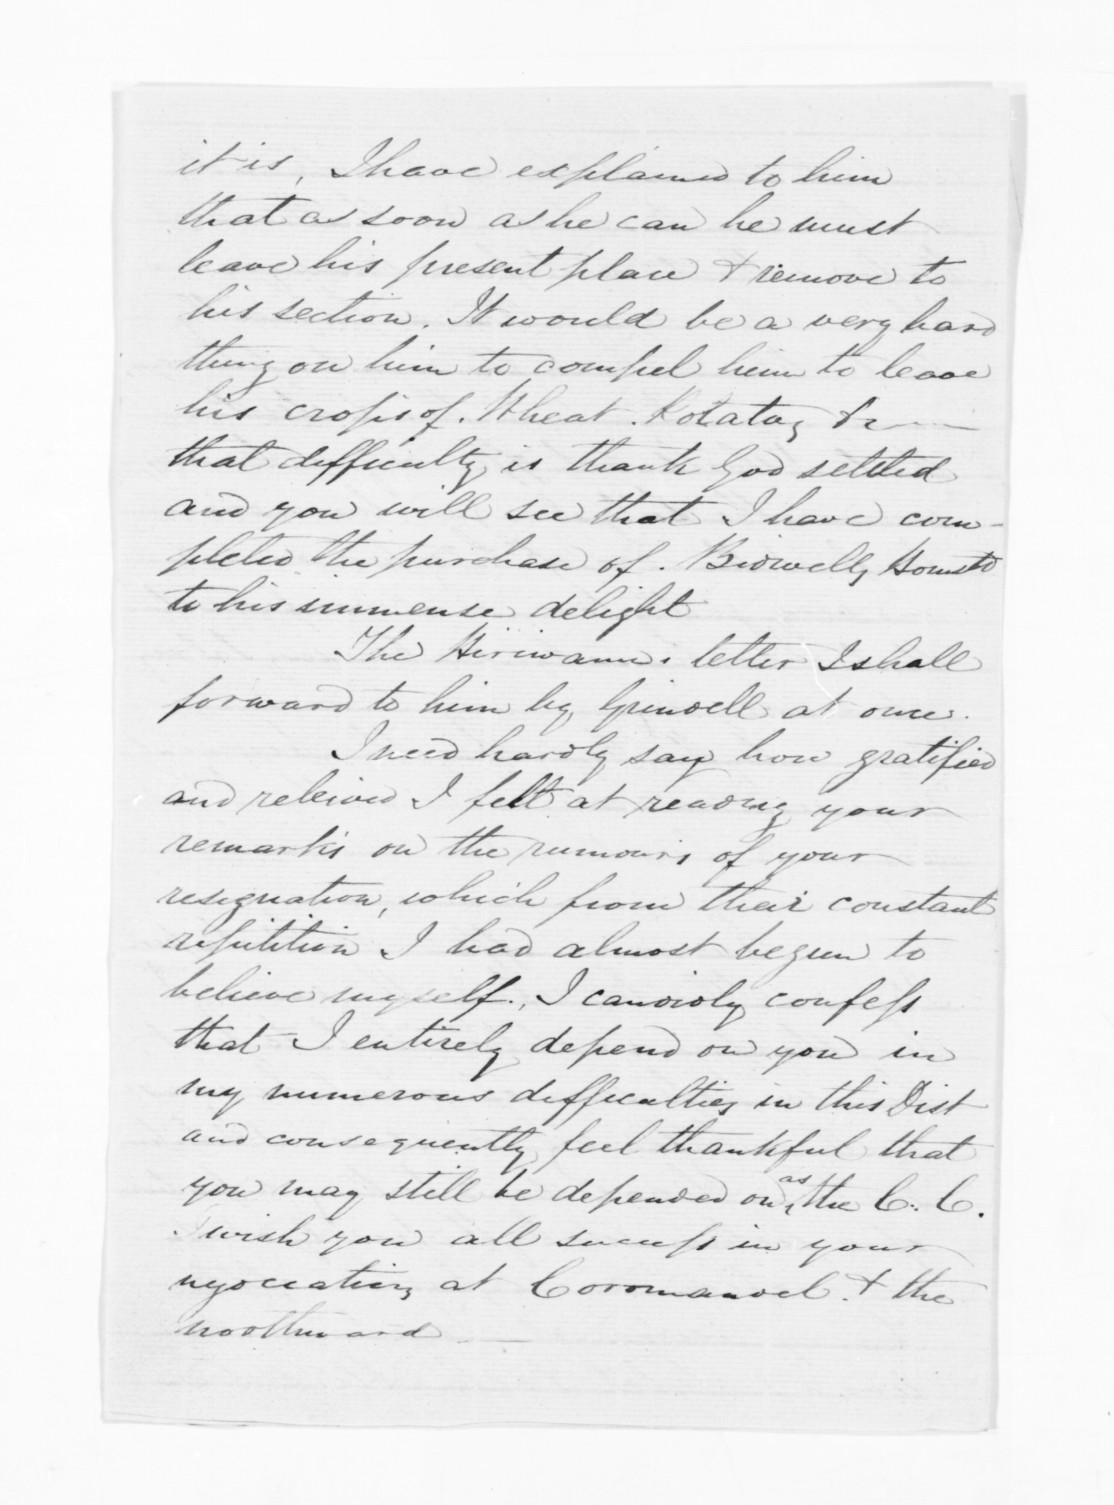 it is, I have explained to him
that as soon as he can he must
leave his present place & remove to
his section. It would be a very hard
thing on him to compel him to leave
his crops of. Wheat. Potatoes &c
that difficulty is thank God settled
and you will see that I have com-
pleted the purchase of. Bidwells Homstd
to his immense delight
The Hiriwanu. letter I shall
forward to him by Grindell at once.
I need hardly say how gratified
and relieived I felt at reading your
remarks on the rumours of your
resignation, which from their constant
repitition I had almost begun to
believe myself., I candidly confess
that I entirely depend on you in
my numerous difficulties in this Dist
and consequently feel thankful that
you may still be depended on as the C. C.
I wish you all success in your
negociations at Coromandel. & the
northward